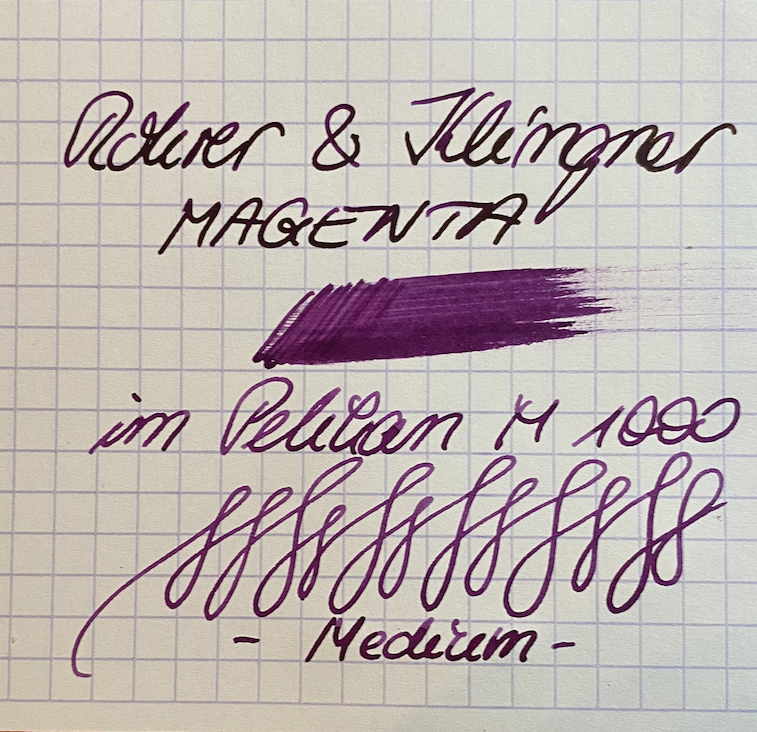 Rohrer & Klingner
MAGENTA
im Pelikan M 1000
- Medium -